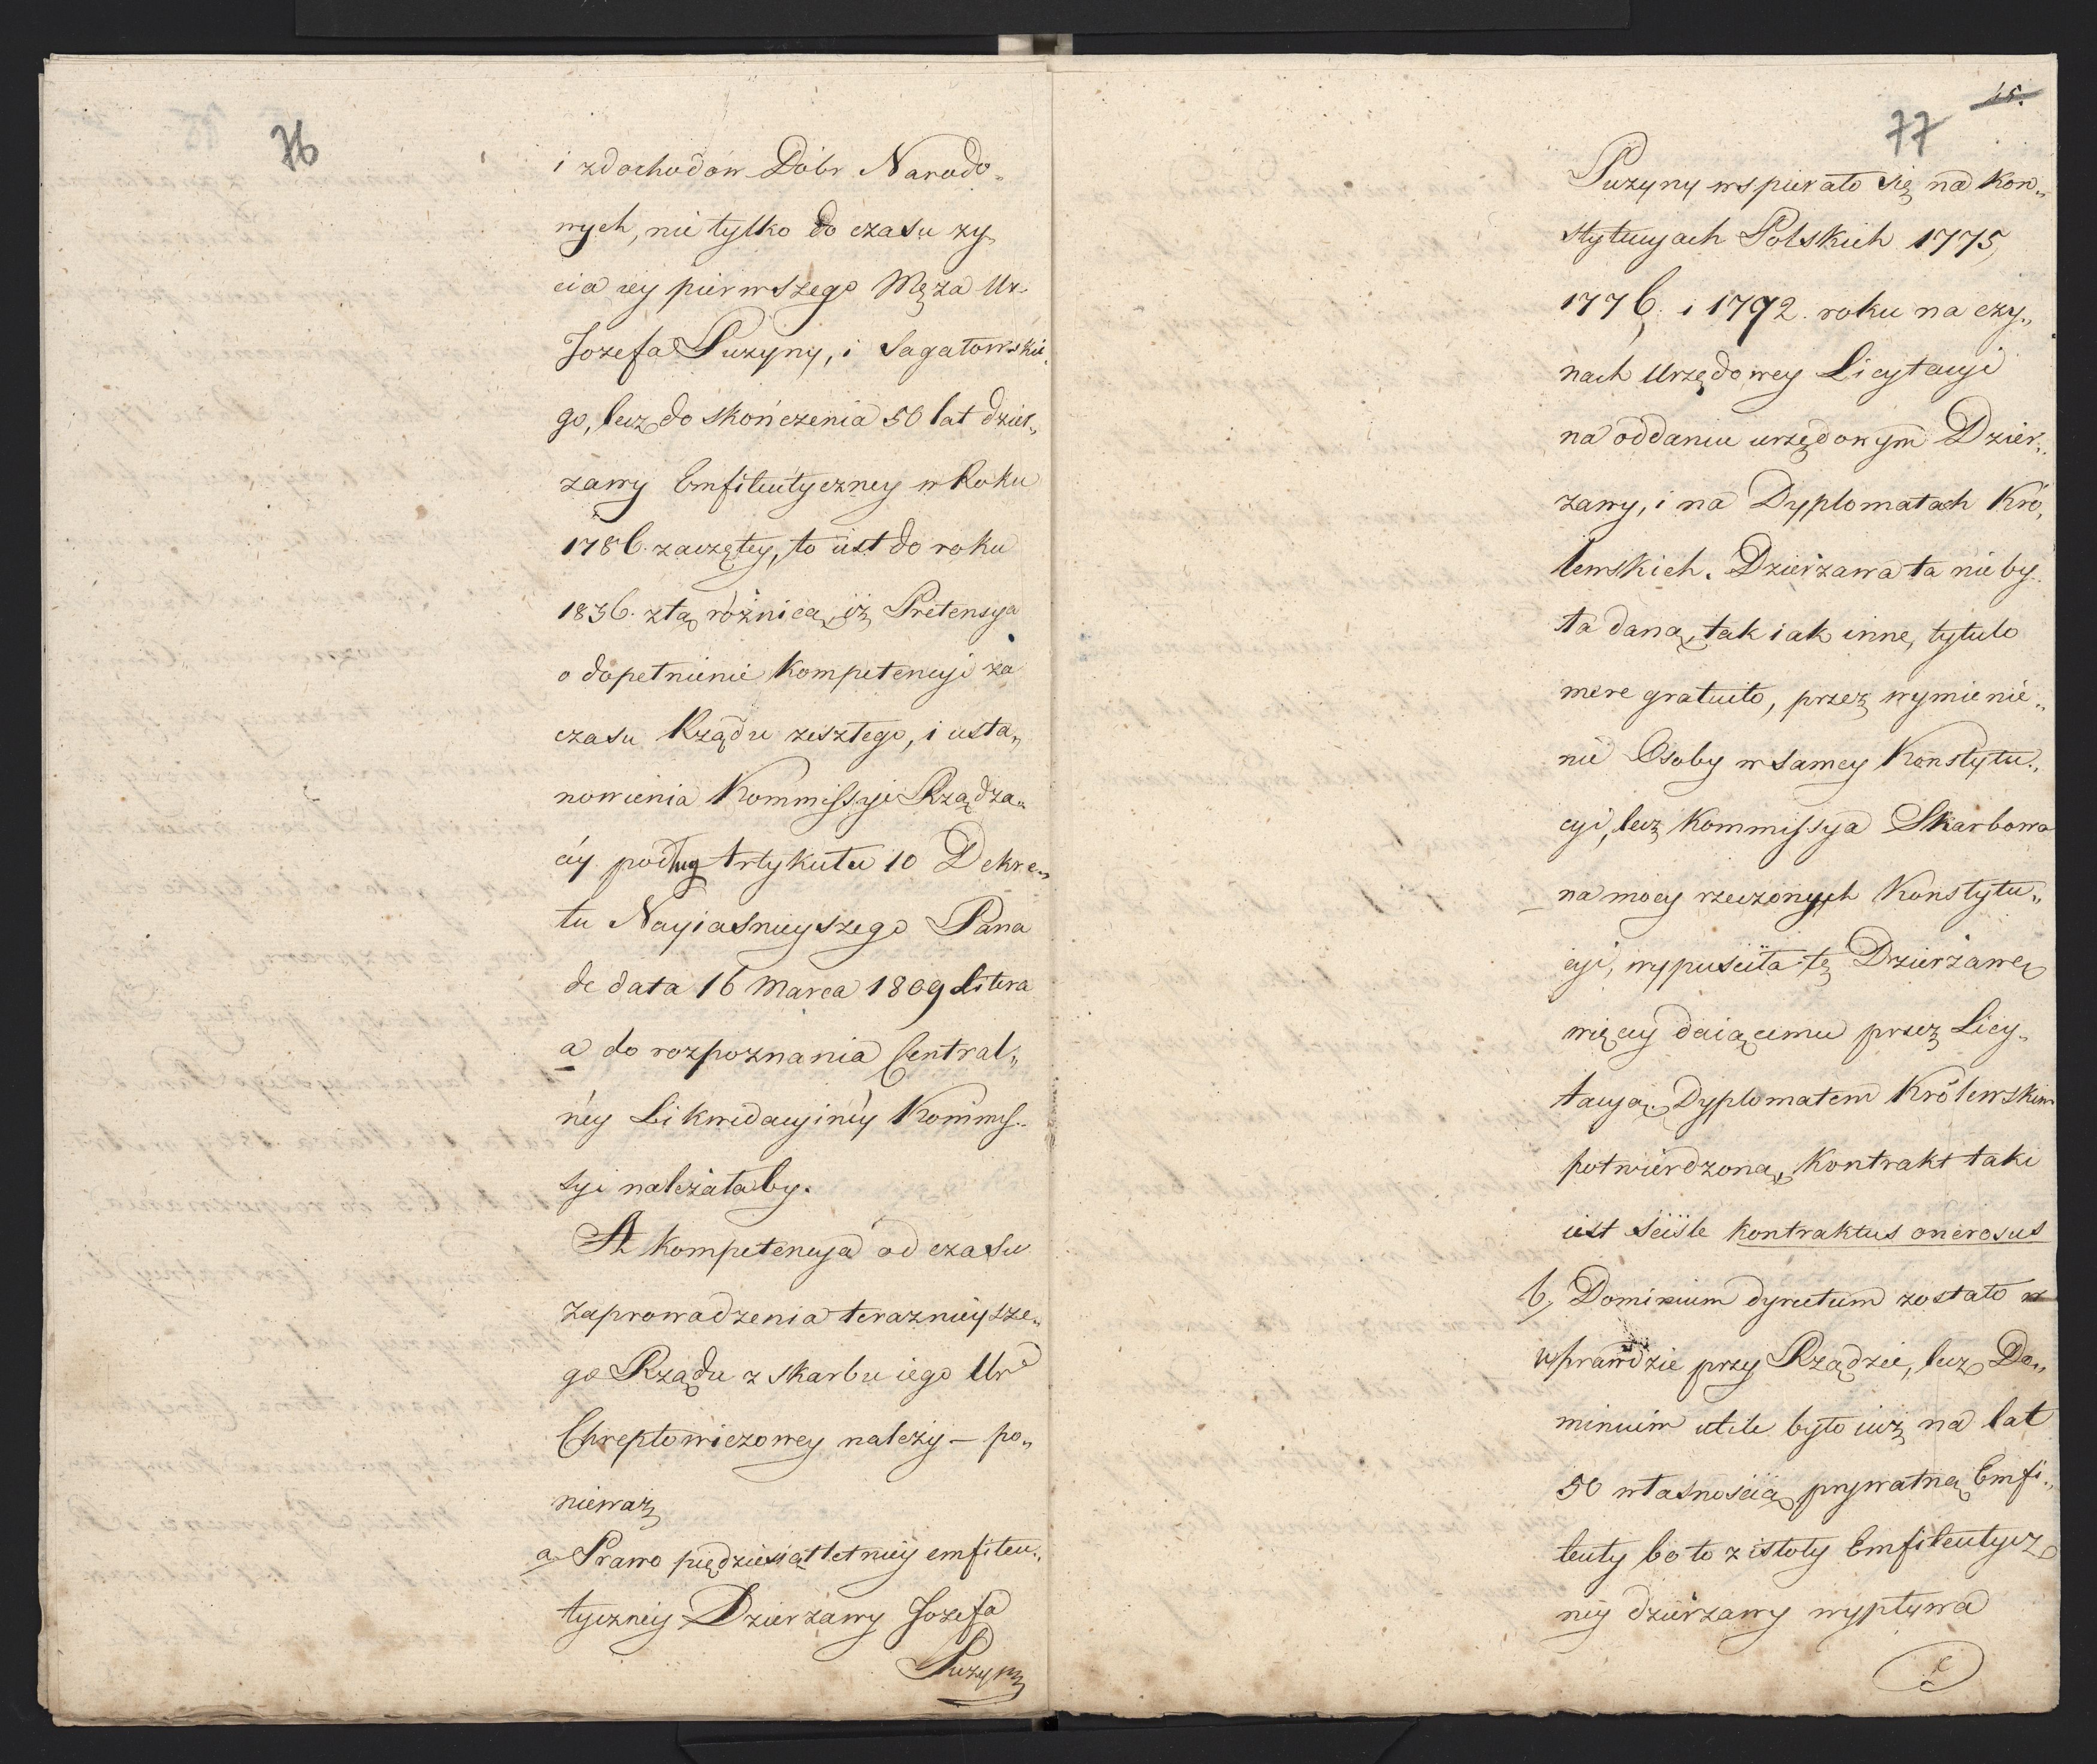 76
i z dochodów Dóbr Narodo„
wych, nie tylko do czasu ży„
cia iey pierwszego Męża Ur.
Jozefa Puzyny, i Sagatowskie„
go, lecz do skończenia 50 lat dzier„
żawy Emfiteutyczney w Roku
1786. zaczętey, to iest do roku
1836. z tą różnicą, iż Pretensya
o dopełnienie Kompetencyi za
czasu Rządu zeszłego, i usta„
nowienia Kommissyi Rządzą„
céy podług Artykułu 10 Dekre„
tu Nayiasnieyszego Pana
de data 16 Marca 1809 Litera
a do rozpoznania Central„
néy Likwidacyinéy Kommis„
syi należałaby.
A kompetencya od czasu
zaprowadzenia teraznieysze„
go Rządu z skarbu iego Ur
Chreptowiczowey należy — po„
nieważ
a. Prawo piędziesiątletniéy emfiteu„
tyczneiy Dzierżawy Jozefa
Puzyny
15.
77
Puzyny wspierało się na Kon„
stytucyach Polskich 1775,
1776. i 1792. roku na czy„
nach Urzędowey Licytacyi
na oddaniu urzędowym Dzier„
żawy, i na Dyplomatach Kró„
lewskich. Dzierżawa ta nie by„
ła daną, tak iak inne, tytulo
mere gratuito, przez wymienie„
nie Osoby w samey Konstytu„
cyi, lecz Kommissya Skarbowa
na mocy rzeczonych Konstytu„
cyi, wypuściła tę Dzierżawę
więcey daiącemu przez Licy„
tacyą. Dyplomatem Królewskim
potwierdzoną, Kontrakt taki
iest ściśle kontraktus onerosus
b, Dominium dyrectum zostało
wprawdzie przy Rządzie, lecz Do„
minium utile było iuż na lat
50 własnością prywatną Emfi„
teuty bo to z istoty Emfiteutycz
néy dzierżawy wypływa
c